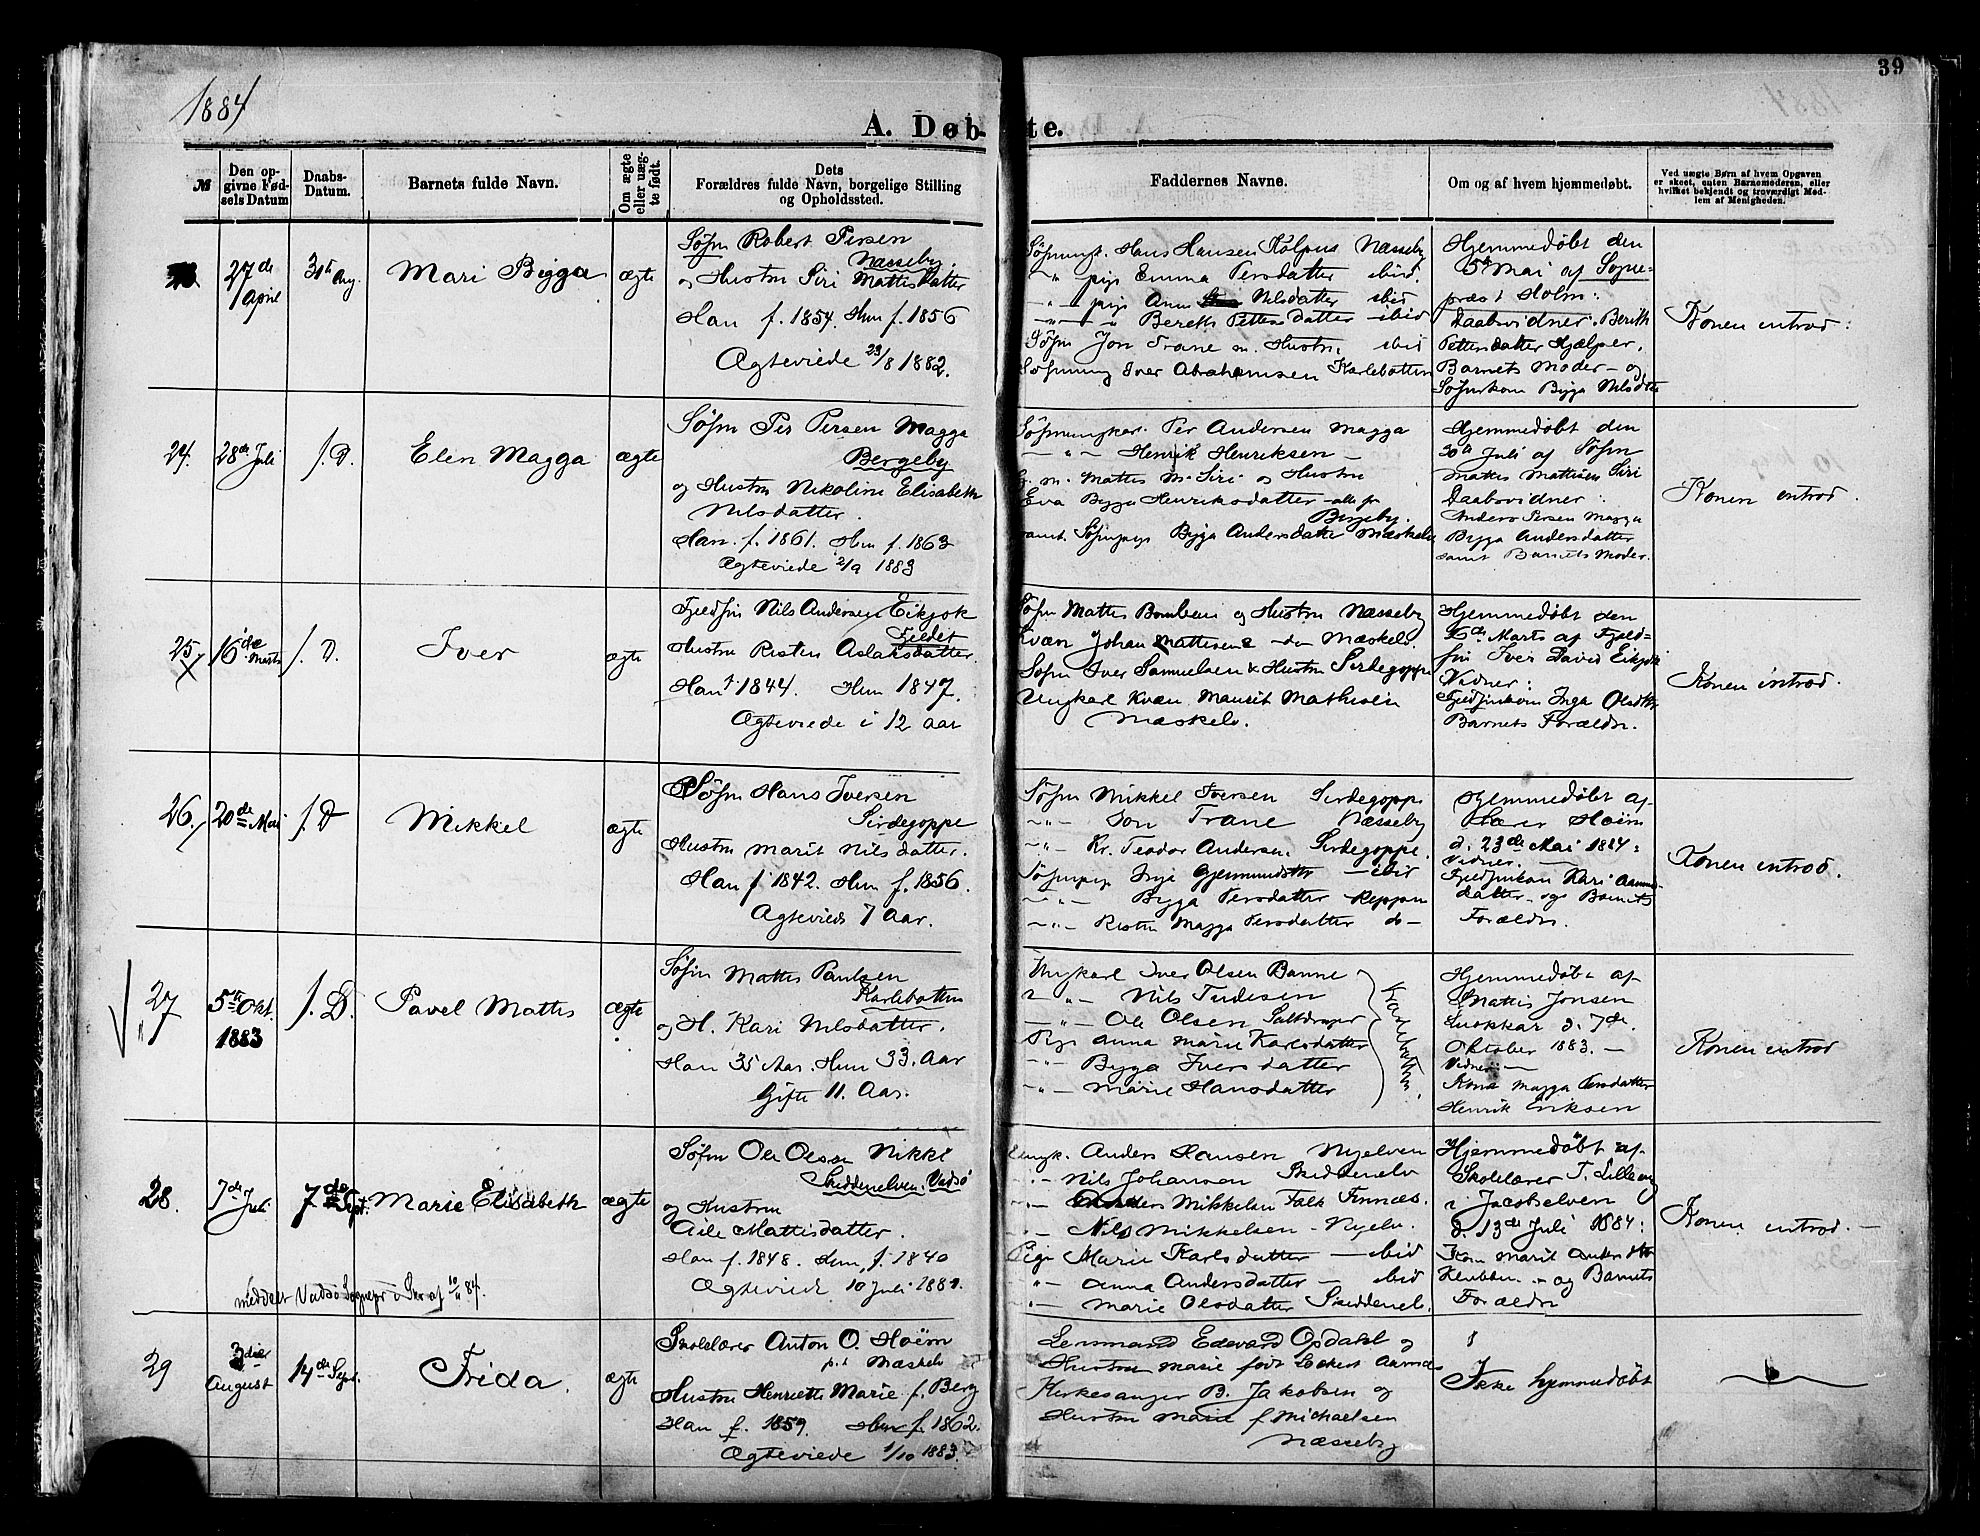 39
1884
A. Døb-te.
№
Den op-
givne Fød-
sels Datum
Daabs-
Datum.
Barnets fulde Navn.
Om ægte
eller uæg-
te født.
Dets
Forældres fulde Navn, borgelige Stilling
og Opholdssted.
Faddernes Navne.
Om og af hvem hjemmedøbt.
Ved uægte Børn af hvem Opgaven
er skeet, enten Barnemoderen, eller
hvilket bekjendt og troværdigt Med-
lem af Menigheden.
27de
April
31te Aug.
Mari Bigga
ægte
Søfin Robert Persen
Næsseby.
og Hustru Siri Mattisdatter
Han f. 1854. Hun f. 1856
Ægteviede 23/8 1882.
Søfinungk. Hans Hansen Kolpus Næsseby
" pige Emma Persdatter ibid.
" pige Anne Nilsdatter ibid
" Bereth Pettersdatter ibid
Søfin Jon Trane m. Hustru, ibid
Søfinung Iver Abrahamsen Karlebotten
Hjemmedøbt den
5te Mai af Sogne-
præst Holm:
Daabsvidner: Berith
Pettersdatter Hjælper,
Barnets Moder - og
Søfinkone Bigga Nilsdtr
Konen introd:
24.
28de Juli
s. D.
Elen Magga
ægte
Søfin Per Persen Magga
Bergeby
og Hustru Nikoline Elisabeth
Nilsdatter.
Han. f. 1861. Hun f. 1863
Ægteviede 2/9 1883
Søfinungkar. Per Andersen Magga
- " - Henrik Henriksen -
G. m. Mattis M. Siri og Hustru
Eva Bygga Henriksdatter - alle fr
Bergeby.
samt Søfinpige Bigga Andersdatter Mæskelv
Hjemmedøbt den
30te Juli af Søfin
Mattis Mattisen Siri
Daabsvidner:
Anders Persen Magga
Bigga Andersdatter
samt Barnets Moder.
Konen introd.
25
16de
Marts
s. D.
Iver
ægte
Fjeldfin Nils Andersen Eikjok
Fjeldet
Hustru Risten Aslaksdatter.
Han f. 1844. Hun 1847.
Ægteviede i 12 Aar
Søfin Mattis Bomban og Hustru Næsseby
Kvæn Johan Mattisen - do - Mæskelv.
Søfin Iver Samuelsen & Hustru Sirdegoppe
Ungkarl Kvæn Maurit Mathisen
Mæskelv.
Hjemmedøbt den
16de Marts af Fjeld-
fin Iver David Eikjok
Vidner:
Fjeldfinkone Inga Olsdtr
Barnets Forældre.
Konen introd.
26.
20de Mai
s. D
Mikkel
ægte
Søfin Hans Iversen
Sirdegoppe
Hustru Marit Nilsdatter.
Han f 1842. Hun f. 1856.
Ægteviede 7 Aar.
Søfin Mikkel Iversen Sirdegoppe
- " - Jon Trane Næsseby
- " - Kr. Teodor Andersen. Sirdegoppe.
Søfinpige Inga Gjermundsdtr - ibid
- " - Byga Persdatter Reppen
- " - Risten Magga Persdatter do -
Hjemmedøbt af
Lærer Hoëm
d. 23de Mai 1884:
Vidner. -
Fjeldfinkone Kari
datter - og Barnets
Forældre.
Konen introd.
27
5te Okt.
1883
s. D.
Pavel Mattis
ægte
Søfin Mattis Paulsen
Karlebotten
og H. Kari Nilsdatter.
Han 35 Aar. Hun 33. Aar
Gifte 11. Aar.
Ungkarl Iver Olsen Banne
- " - Nils Tudesen
- " - Ole Olsen
Pige Anna Marie Karlsdatter
- " - Byga Iversdatter
- " - Marie Hansdatter
Karlebotten.
Hjemmedøbt af
Mattis Jonsen
d. 7de
Oktober 1883. -
Vidner: -
Kone Magga Persdatter
Henrik Eriksen
Konen introd
28.
7de Juli
7de Sept.
Marie Elisabeth
ægte
Søfin Ole Olsen Nikki
Skiddenelven. Vadsø
og Hustru
Aile Mattisdatter.
Han f. 1848. Hun f. 1840
Ægteviede 10 Juli 1881.
meddelt Vadsø Sognepr i Skr af 10/11 84.
Ungk. Anders Hansen Nyelven
- " - Nils Johansen Skiddenelv
- " - Anders Mikkelsen Falk Finnæs.
- " - Nils Mikkelsen - Nyelv.
Pige Marie Karlsdatter - ibid
- " - Anna Andersdatter - ibid
- " - Marie Olsdatter Skiddenelv.
Hjemmedøbt af
Skolelærer T. Lilleeng
i Jacobselven
d. 13de Juli 1884:
Kone Marit Andersdtr
Klubben - og Barnets
Forældre
Konen introd. -
29
3die
August
14de Sept.
Frida.
ægte
Skolelærer Anton O. Hoëm
p.t Mæskelv
Hustru Henriette Marie f. Berg
Han f. 1859. Hun f. 1862.
Ægteviede 1/10 1883.
Lensmand Edevard Opdahl og
Hustru Marie født Eckert
Kirkesanger B. Jakobsen og
Hustru Marie f Michaelsen
Næsseby
Ikke hjemmedøbt